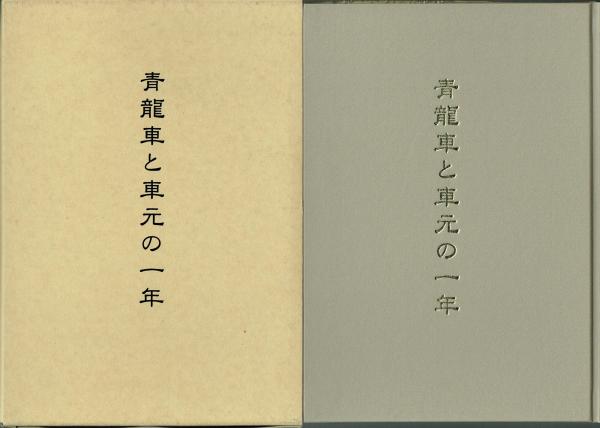 青龍車と車元の一年
青龍車と車元の一年